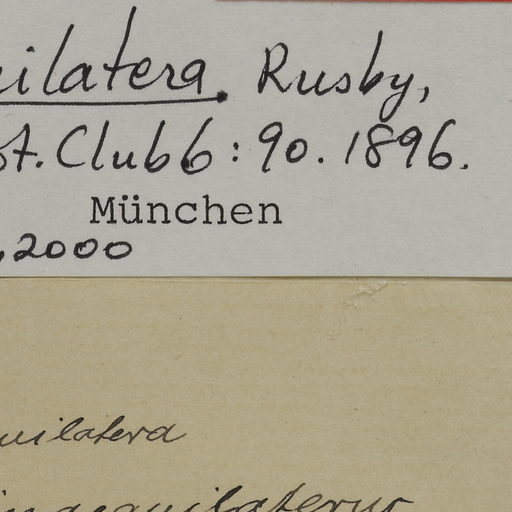 uilatera. Rusby,
ot. Club 6: 90. 1896.
München
, 2000
uilatera
inaequilaterus